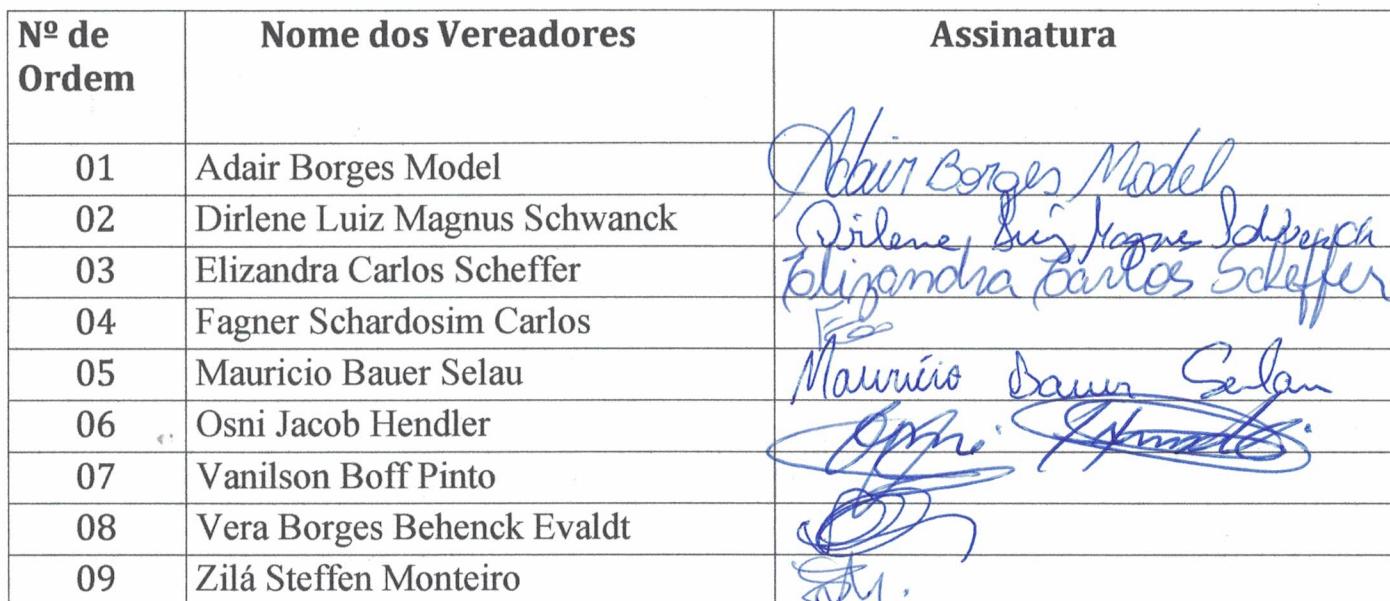 Nº de Ordem Nome dos Vereadores Assinatura
01 Adair Borges Model Adair Borges Model
02 Dirlene Luiz Magnus Schwanck Dirlene Luiz Magnus Schwanck
03 Elizandra Carlos Scheffer Elizandra Carlos Scheffer
04 Fagner Schardosim Carlos
05 Mauricio Bauer Selau Maurício Bauer Selau
06 Osni Jacob Hendler
07 Vanilson Boff Pinto
08 Vera Borges Behenck Evaldt
09 Zilá Steffen Monteiro